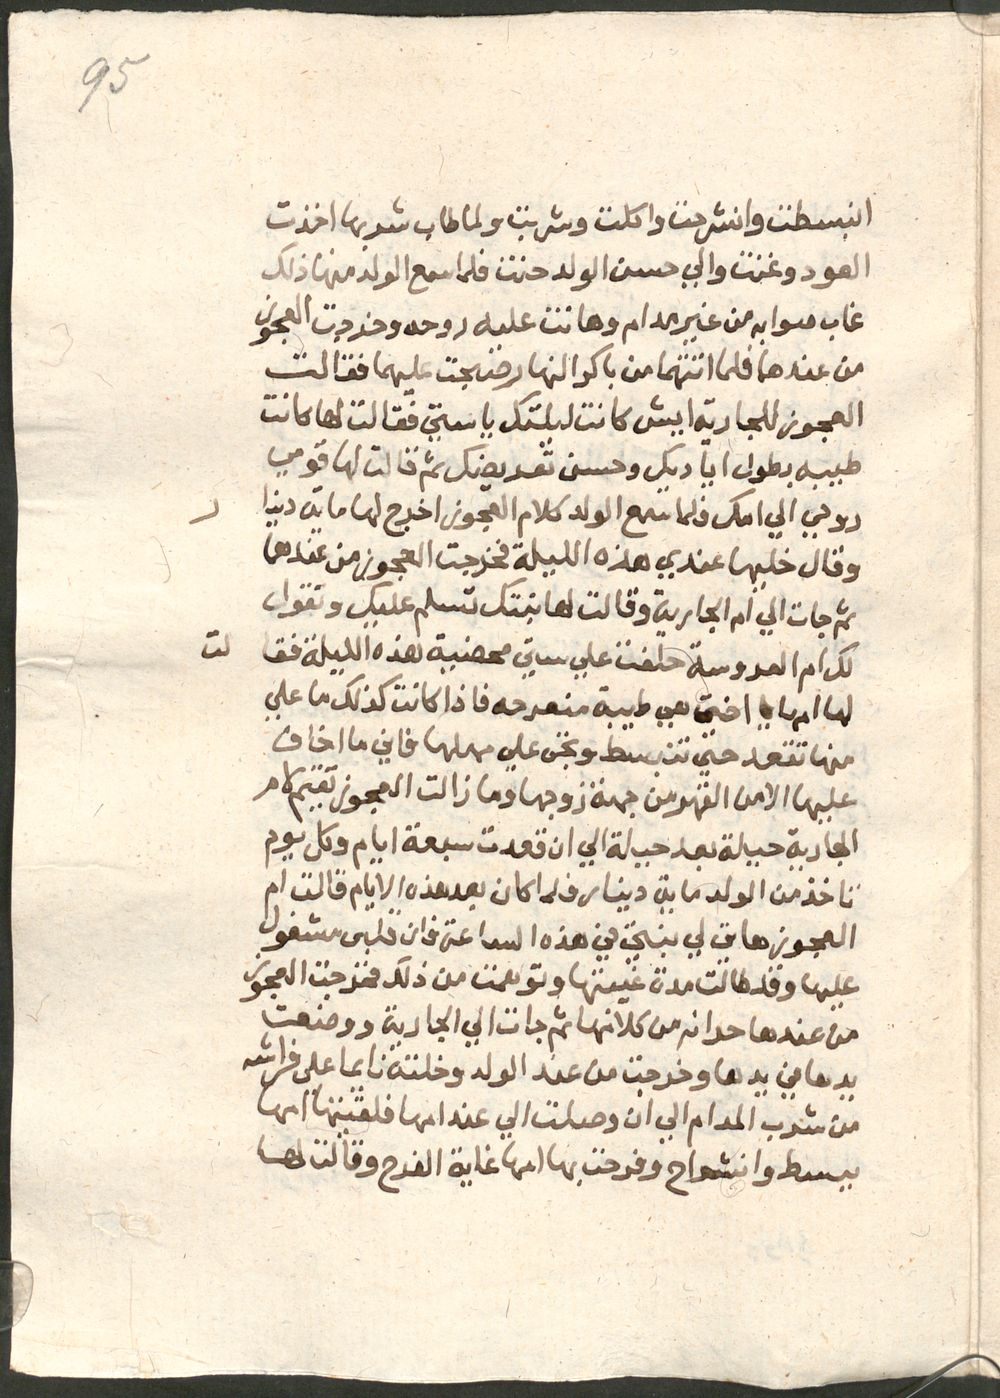 95
انبسطت وانشرحت واكلت وشربت ولما طاب شربها اخذت
العود وغنت والي حسن الولد حنت فلما سمع الولد منها ذلك
غاب صوابه من غير مدام وهانت عليه روحه وخرجت العجوز
من عندهما فلما انتهما من باكر النهار صبحت عليهما فقالت
العجوز للجارية ايش كانت ليلتك يا ستي فقالت لها كانت
طيبه بطول اياديك وحسن تعريضك ثم قالت لها قومي
روحي الي امك فلما سمع الولد كلام العجوز اخرج لها ماية دينا ر
وقال خليها عندي هذه الليلة فخرجت العجوز من عندهما
ثم جات الي ام الجارية وقالت لها بنتك تسلم عليك وتقول
لك ام العروسة حلفت علي ستي محضية هذه الليلة فقا لت
لها امها يا اختي هي طيبة منعرحه فاذا كانت كذلك ما علي
منها تقعد حتي تنبسط وتجي علي مهلها فاني ما اخاف
عليها الا من القهر من جهة زوجها وما زالت العجوز تقيم لام
الجارية حيلة بعد حيلة الي ان قعدت سبعة ايام وكل يوم
تاخذ من الولد ماية دينار فلما كان بعد هذه الايام قالت ام
العجوز هاتي لي بنتي في هذه الساعة فان قلبي مشغول
عليها وقد طالت مدة غيبتها وتوهمت من ذلك فخرجت العجوز
من عندها حردانه من كلامها ثم جات الي الجارية ووضعت
يدها في يدها وخرجت من عند الولد وخلته نايما علي فراشه
من شرب المدام الي ان وصلت الي عند امها فلقتنها امها
ببسط وانشراح وفرحت بها امها غاية الفرح وقالت لها